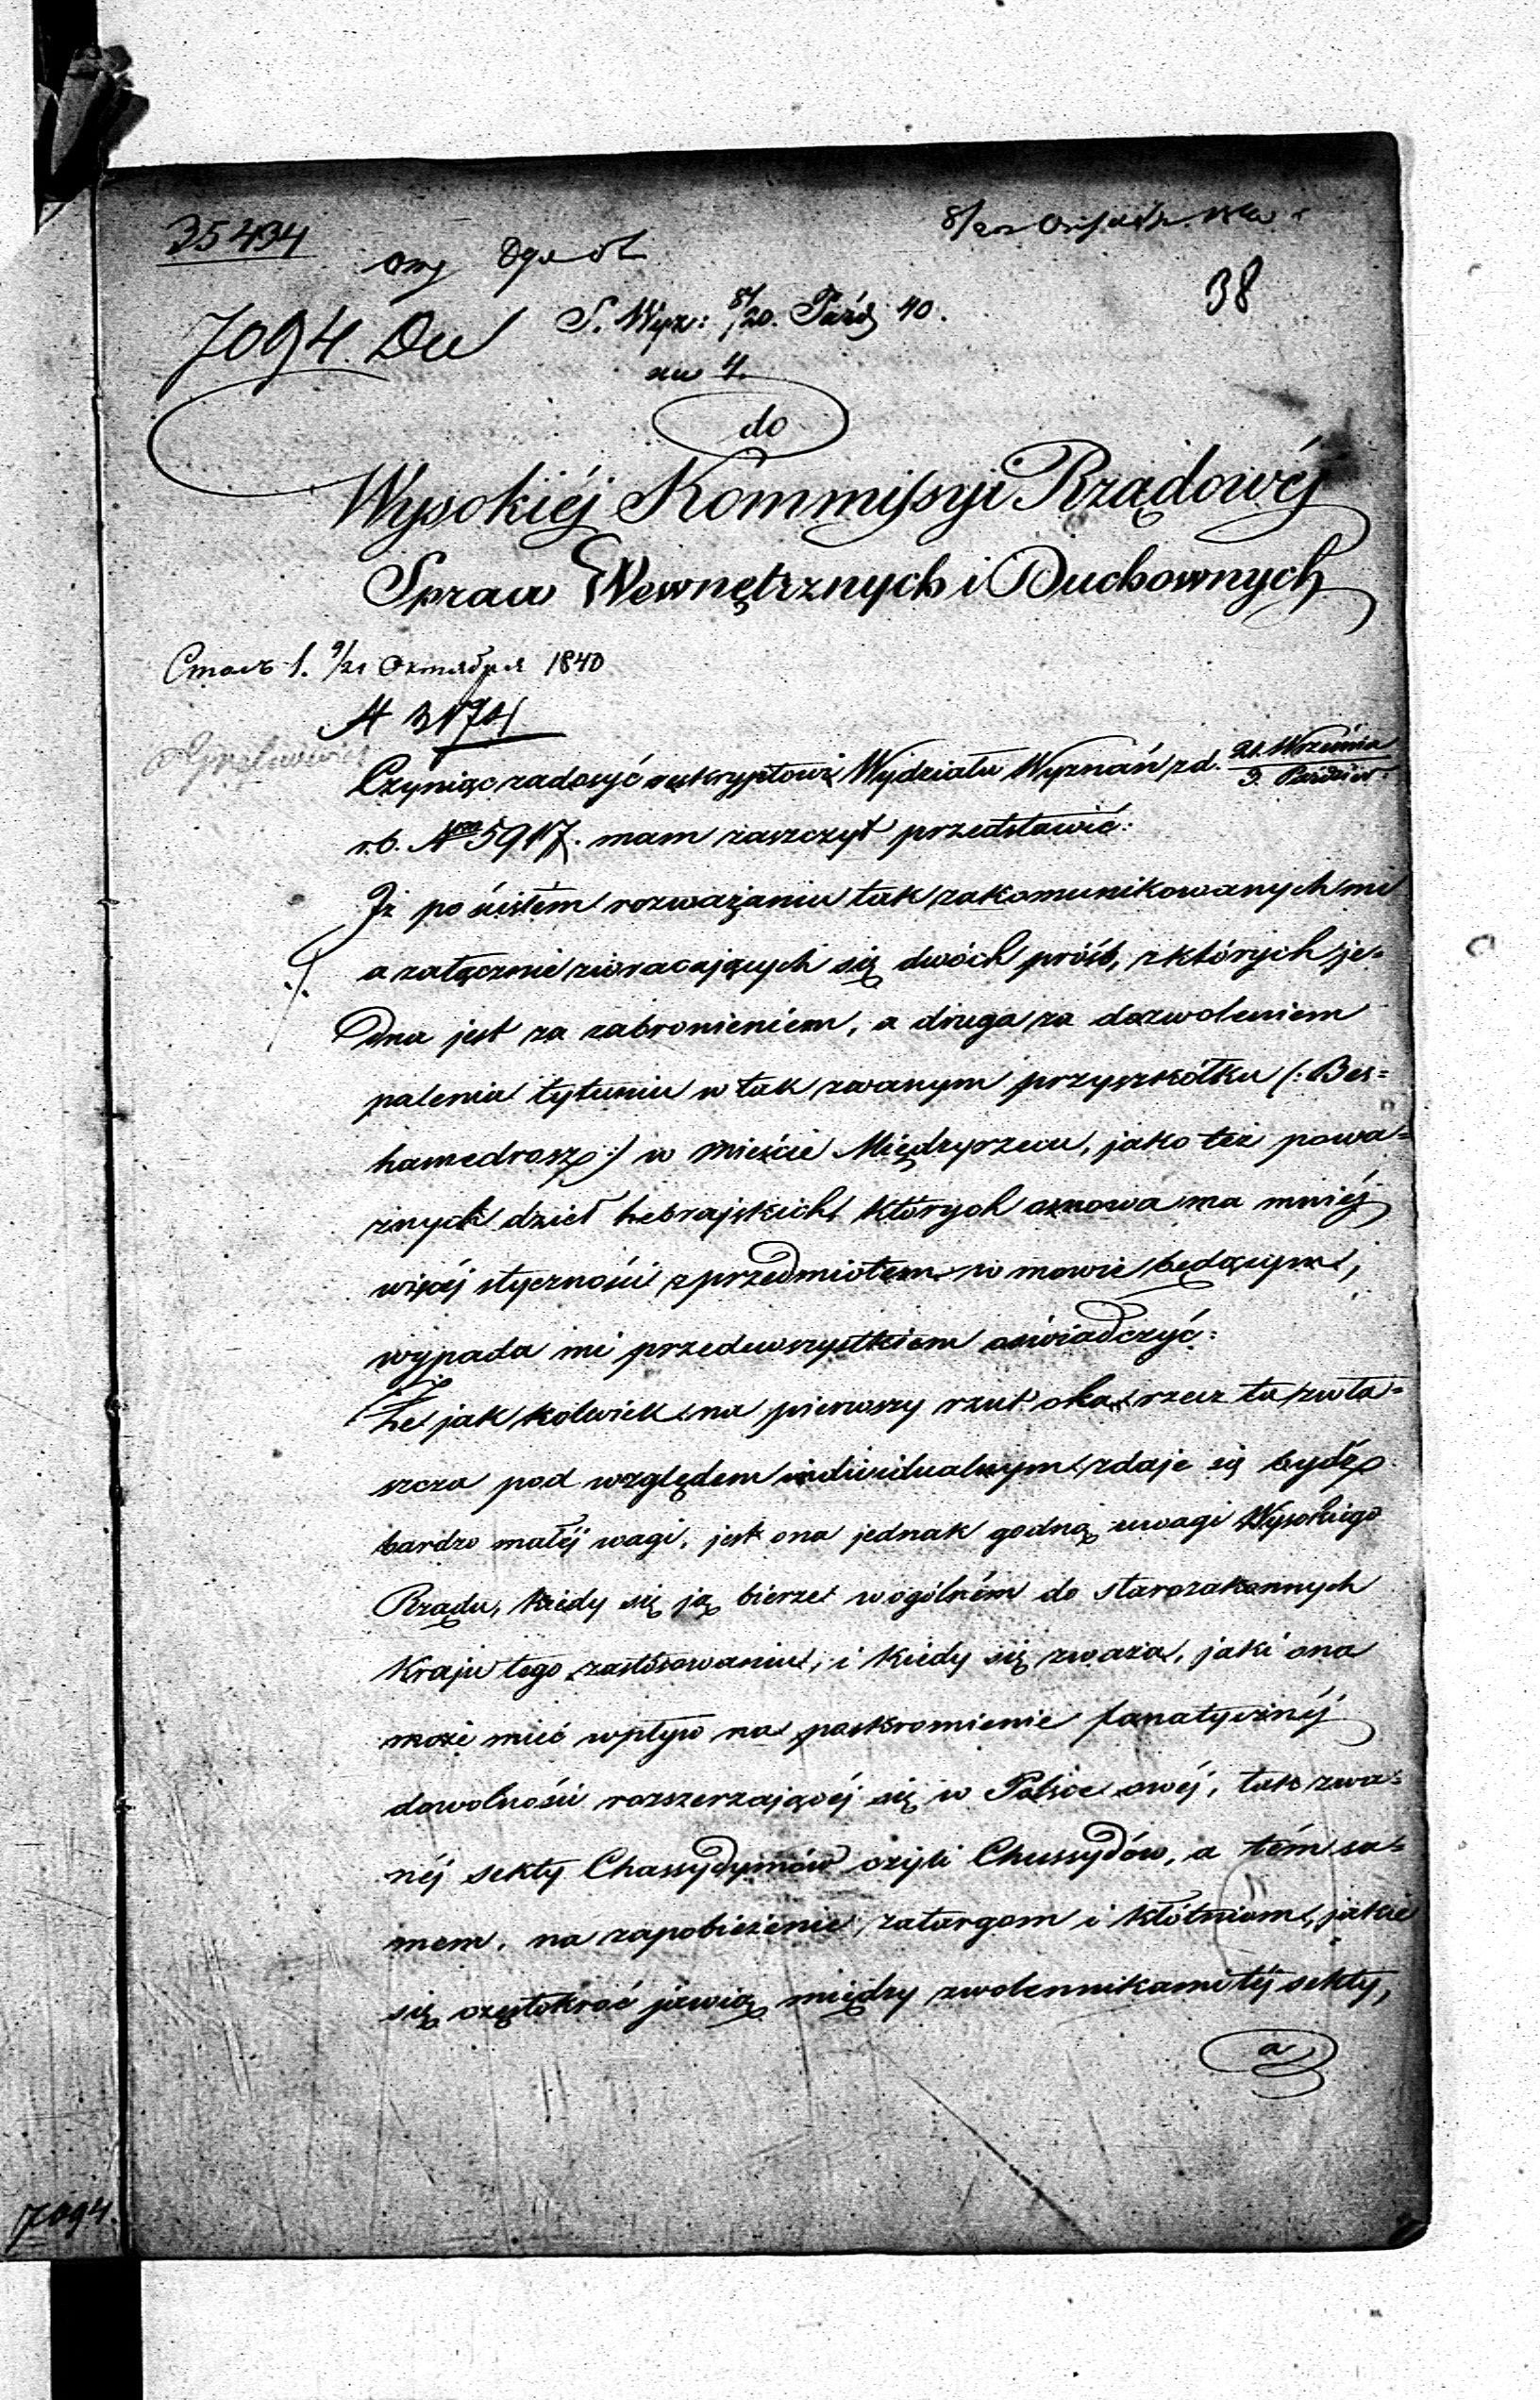 35434
38
7094. Du
S. Wyz: 8/20. Paźdz 40.
4.
do
Wysokiéj Kommissyi Rządowéj
Spraw Wewnętrznych i Duchownych
1. 9/21 Октября 1840
Czyniąc zadosyć reskryptowi Wydziału Wyznań z d. 21. Września / 3. Paździer:
r.b. Nro 5917. mam zaszczyt przedstawić:
Iż po ścisłém rozważaniu tak zakomunikowanych mi
a załącznie zwracających się dwóch próśb, z których je-
dna jest za zabronieniem, a druga za dozwoleniem
palenia tytuniu w tak zwanym przyszkółku (: Bes=
hamedrosz :) w mieście Międzyrzecu, jako też powa=
żnych dzieł hebrajskich, których osnowa ma mniéj
więcéj styczności z przedmiotem w mowie będącym;
wypada mi przedewszystkiem oświadczyć:
Że jakkolwiek na pierwszy rzut oka rzecz ta, zwła=
szcza pod względem individualnym zdaje się bydź
bardzo małéj wagi, jest ona jednak godną uwagi Wysokiego
Rządu, kiedy się ją bierze w ogólném do starozakonnych
Kraju tego zastósowaniu, i kiedy się zważa, jaki ona
może mieć wpływ na poskromienie fanatycznéj
dowolności rozszerzającéj się w Polsce owéj, tak zwa=
néj sekty Chassydymów czyli Chussydów, a tém sa=
mem, na zapobieżenie zatargom i kłótniom, jakie
się częstokroć jawią między zwolennikami téj sekty,
a
7094.